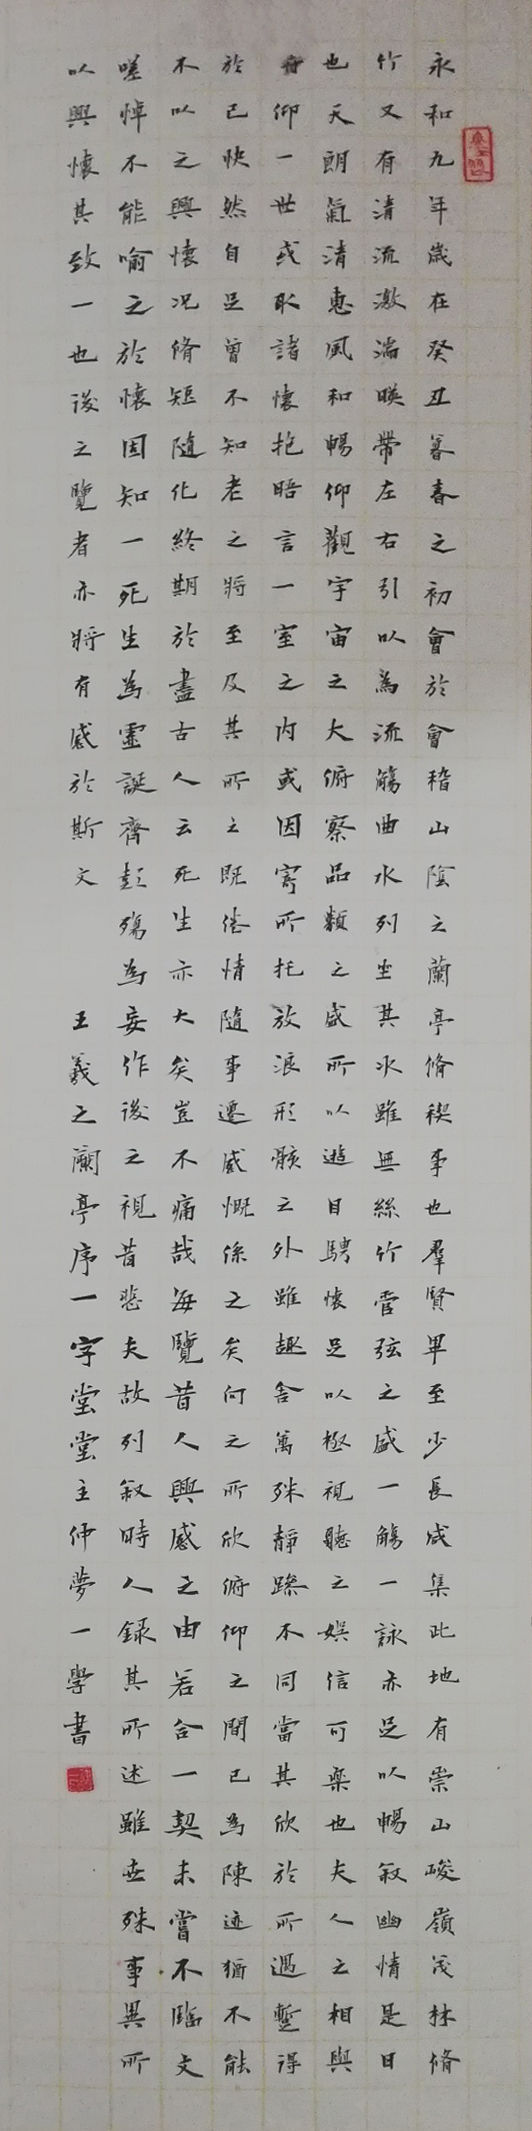 永和九年歲在癸丑暮春之初會於會稽山陰之蘭亭脩禊事也羣賢畢至少長咸集此地有崇山峻嶺茂林脩
竹又有清流激湍暎帶左右引以為流觴曲水列坐其水雖無絲竹管弦之盛一觴一詠亦足以暢叙幽情是日
也天朗氣清惠風和暢仰觀宇宙之大俯察品類之盛所以遊目騁懷足以極視聽之娛信可樂也夫人之相與
仰一世或取諸懷抱晤言一室之內或因寄所托放浪形骸之外雖趣舍萬殊靜躁不同當其欣於所遇蹔得
於己快然自足曾不知老之將至及其所之既惓情隨事遷感慨係之矣向之所欣俯仰之間已為陳迹猶不能
不以之興懷況脩短隨化終期於盡古人云死生亦大矣豈不痛哉每覽昔人興感之由若合一契未嘗不臨文
嗟悼不能喻之於懷固知一死生為虛誕齊彭殤為妄作後之視昔悲夫故列叙時人錄其所述雖世殊事異所
以興懷其致一也後之覽者亦將有感於斯文 王羲之蘭亭序一字堂堂主仲夢一學書